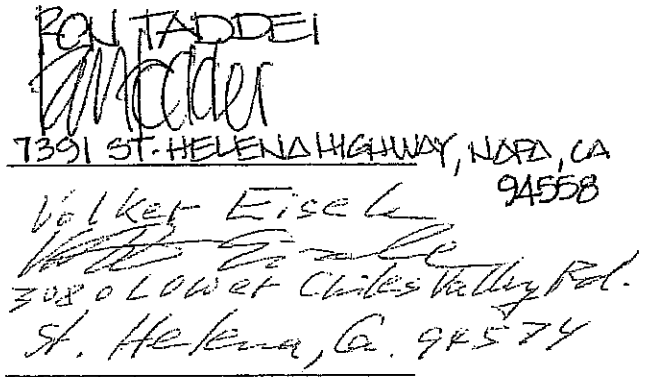 RON TADDEI
Ron Taddei
7391 ST. HELENA HIGHWAY, NAPA, CA
94558
Volker Eisele
Volker Eisele
3080 Lower Chiles Valley Rd.
St. Helena, Ca. 94574